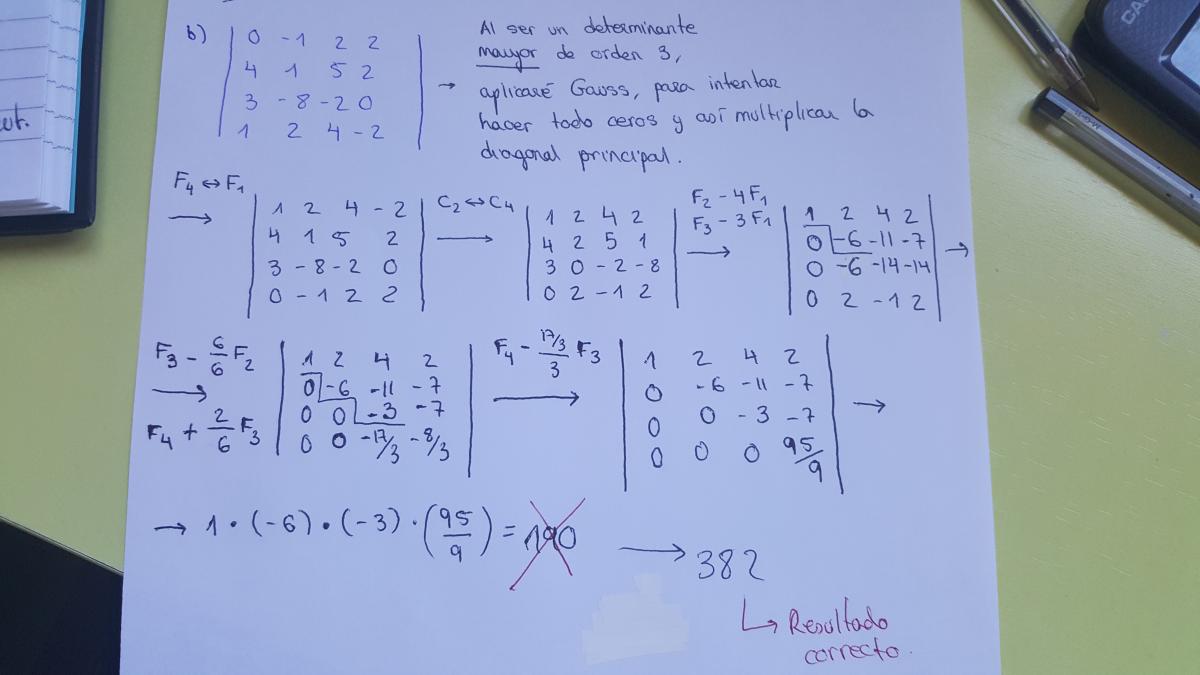 b) | 0 -1 2 2 |
| 4 1 5 2 |
| 3 -8 -2 0 |
| 1 2 4 -2 |
→ Al ser un determinante
mayor de orden 3,
aplicaré Gauss, para intentar
hacer todo ceros y así multiplicar la
diagonal principal.
F4 ↔ F1
→
| 1 2 4 -2 |
| 4 1 5 2 |
| 3 -8 -2 0 |
| 0 -1 2 2 |
C2 ↔ C4
→
| 1 2 4 2 |
| 4 2 5 1 |
| 3 0 -2 -8 |
| 0 2 -1 2 |
F2 - 4F1
F3 - 3F1
→
| 1 2 4 2 |
| 0 -6 -11 -7 |
| 0 -6 -14 -14 |
| 0 2 -1 2 |
→
F3 - 6/6 F2
→
F4 + 2/6 F3
| 1 2 4 2 |
| 0 -6 -11 -7 |
| 0 0 -3 -7 |
| 0 0 -17/3 -8/3 |
F4 - 17/3/3 F3
→
| 1 2 4 2 |
| 0 -6 -11 -7 |
| 0 0 -3 -7 |
| 0 0 0 95/9 |
→
→ 1 · (-6) · (-3) · (95/9) = 190 → 382
↳ Resultado
correcto.